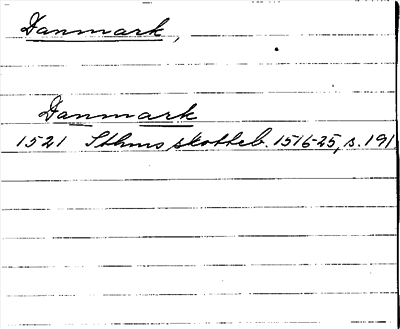 Danmark,
Danmark
1521 Sthms skotteb. 1516-25, s. 191